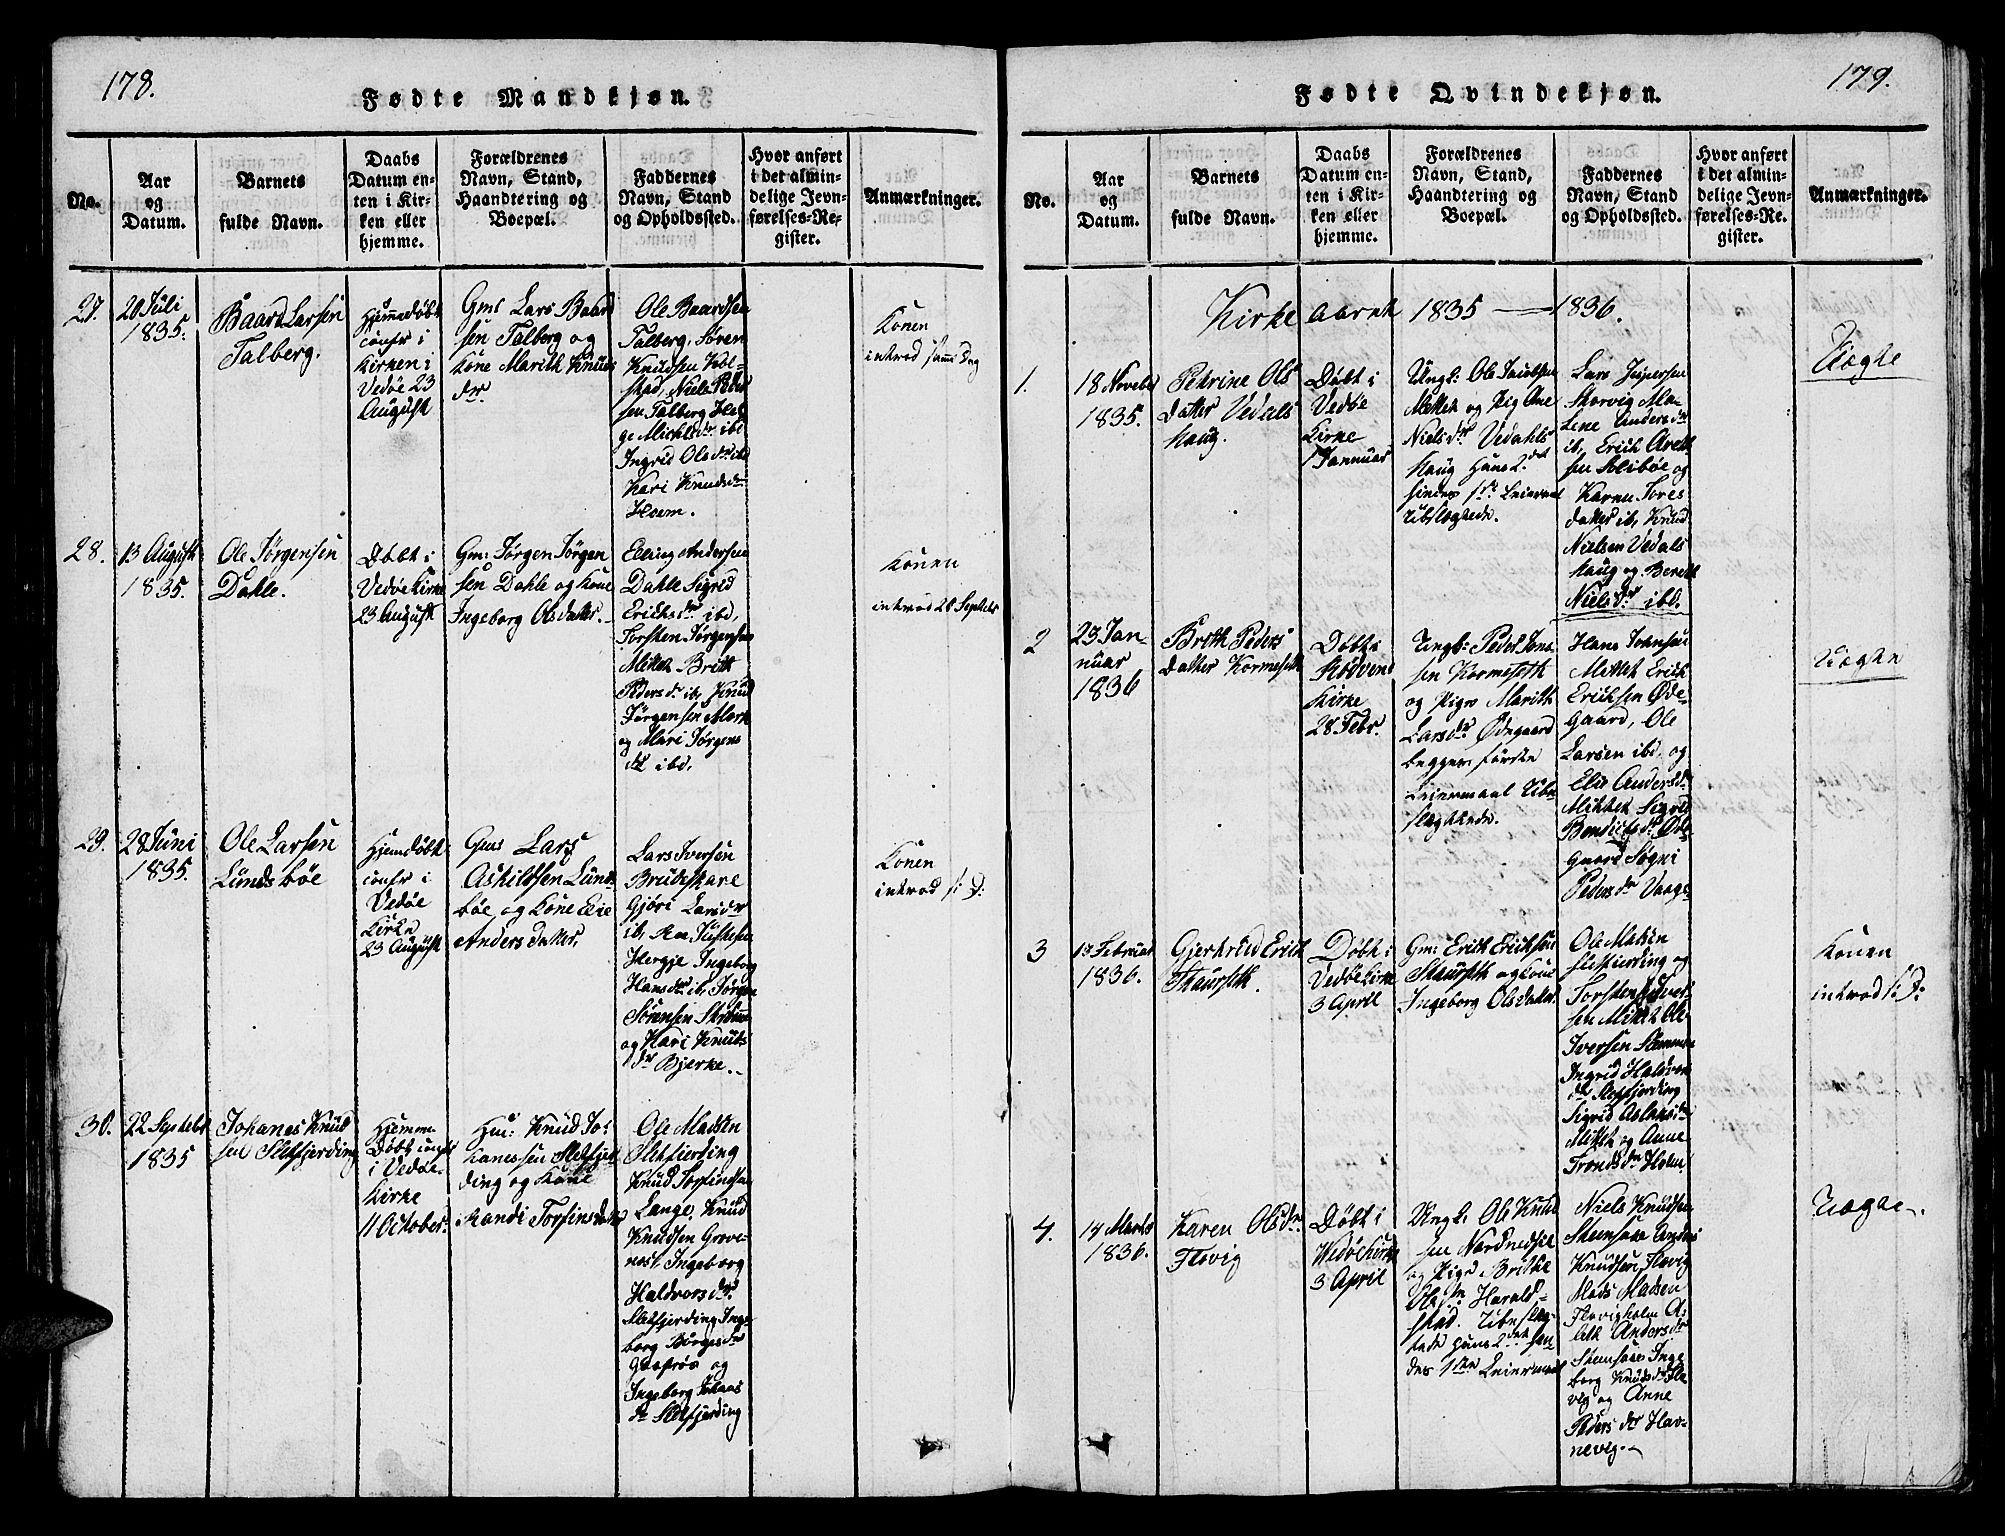 178.
Fødte Mandkjøn.
No.
Aar
og
Datum.
Barnets
fulde Navn.
Daabs
Datum en-
ten i Kir-
ken eller
hjemme.
Forældrenes
Navn, Stand,
Haandtering og
Boepæl.
Faddernes
Navn, Stand
og Opholdssted.
Hvor anført
i det almin-
delige Jevn-
førelses-Re-
gister.
Anmærkninger.
27.
20 Juli
1835.
Baard Larsen
Talberg.
Hjemedøbt
confr i
Kirken i
Vedøe 23
August
Gmd Lars Baard
sen Talberg og
Kone Marith Knuds
dr
Ole Baardsen
Talberg, Søren
Knudsen Kol-
stad, Niels Peder
sen Talberg Hel
ge Michelsdr ibd
Ingrid Olsdr ibd
Kari Knudsdr
Hoem.
Konen
introd samme Dag
28.
13 August
1835.
Ole Jørgensen
Dahle.
Døbt i
Vedøe Kirke
23 August
Gm: Jørgen Jørgen
sen Dahle og Kone
Ingeborg Olsdatter.
Elling Andersen
Dahle Sigrid
Erichsdr ibd,
Torsten Jørgensen
Mittet Britt
Pedersdr ib, Knud
Jørgensen Mork
og Mari Jørgens
dr ibd.
Konen
introd 20 Septebr
29.
28 Juni
1835.
Ole Larsen
Lunds bøe
Hjemdøbt
confr i
Vedøe
Kirke
23 August
Gm: Lars
Askildsen Lund
bøe, og Kone Elie
Anders datter,
Lars Iversen
Brudeskare
Gjøri Larsdr
ib,
Hergje Ingeborg
Hansdr ib, Jørgen
Sørensen
og Kari Knuds
dr Bjerke.
Konen
introd s: D:
30.
22 Septebr
1835
Johanes Knud
sen Sletfjerding
Hjemme
Døbt confr
i Vedøe
Kirke
11 October.
Hm: Knud Jo
hanessen Sletfjer
ding og Kone
Randi Torfinsdatter
Ole Madsen
Sletfierding
Knud Torfindsen
Lange, Knud
Knudsen Grove
nest, Ingeborg
Haldvorsdr
Sletfjerding Inge-
borg Børgesdr
og
Ingeborg Johans
dr Sletfjerding
179.
Fødte Qvindekjøn.
No.
Aar
og
Datum.
Barnets
fulde Navn.
Daabs
Datum en-
ten i Kir-
ken eller
hjemme.
Forældrenes
Navn, Stand,
Haandtering og
Boepæl.
Faddernes
Navn, Stand
og Opholdssted.
Hvor anført
i det almin-
delige Jevn-
førelses-Re-
gister.
Anmærkninger.
Kirke aaret 1835 — 1836.
1.
18 Novebr
1835.
Petrine Ols
datter Vedals
haug.
Døbt i
Vedøe
Kirke
1 Januuar
Ungk: Ole Jacobsen
Mittet og Pig Ane
Nielsdr Vedahls
haug Hans 2det
hindes 1ste Leiermaal
Lars Jespersen
Storvig Ma-
lene Andersdr
ib, Erich Aret
sen Solibøe og
Karen Tores
datter ib, Knud
Nielsen Vedals
haug og Bereth
Nielsdr ibd.
Uægte
2
23 Jan-
nuar
1836
Brith Peders
datter Kormeseth
Døbt i
Rødvens
Kirke
28 Febr.
Ungk: Peder Jons
sen Kormeseth
og Pige Marith
Larsdr Ødegaard
begges første
Leiermaal Ube
slægtede.
Hans Iversen
Mittet Erich
Erichsen Øde-
gaard, Ole
Larsen ibd. og
Elie Andersdr
Mittet Sigrid
Bendictsdr Øde
gaard Søgni
Pedersdr Vaage
Uægte
3
13 Februar
1836.
Gjertrud Erich
Staurseth.
Døbt i
Vedøe Kirke
3 April
Gm: Erich Erichsen
Staurseth og Kone
Ingeborg Olsdatter
Ole Madsen
Sletfierding og
Torsten Sivert
sen Mittet Ole
Iversen
Ingrid Haldvors
dr Sletfjerding
Sigrid Aslaksdr
Mittet og Anne
Trondsdr Holm
Konen
introd s: D:
4.
14 Marts
1836.
Karen Olsdr
Flovig
Døbt i
Wedøe Kirke
3 April
Ungk: Ole Knud
sen Nordnedsit
og Pige Britthe
Olsdr Harald-
stad. Ubeslæg-
tede Hans 2det hen
des 1ste Leiermaal
Niels Knudsen
Stensaae Anders
Knudsen Flovig
Mads Madsen
Flovigholm A:
leth Andersdr
Stensaae Inge
borg Knudsdr Flo
vig og Anne
Pedersdr Hav-
nevig.
Uægte.